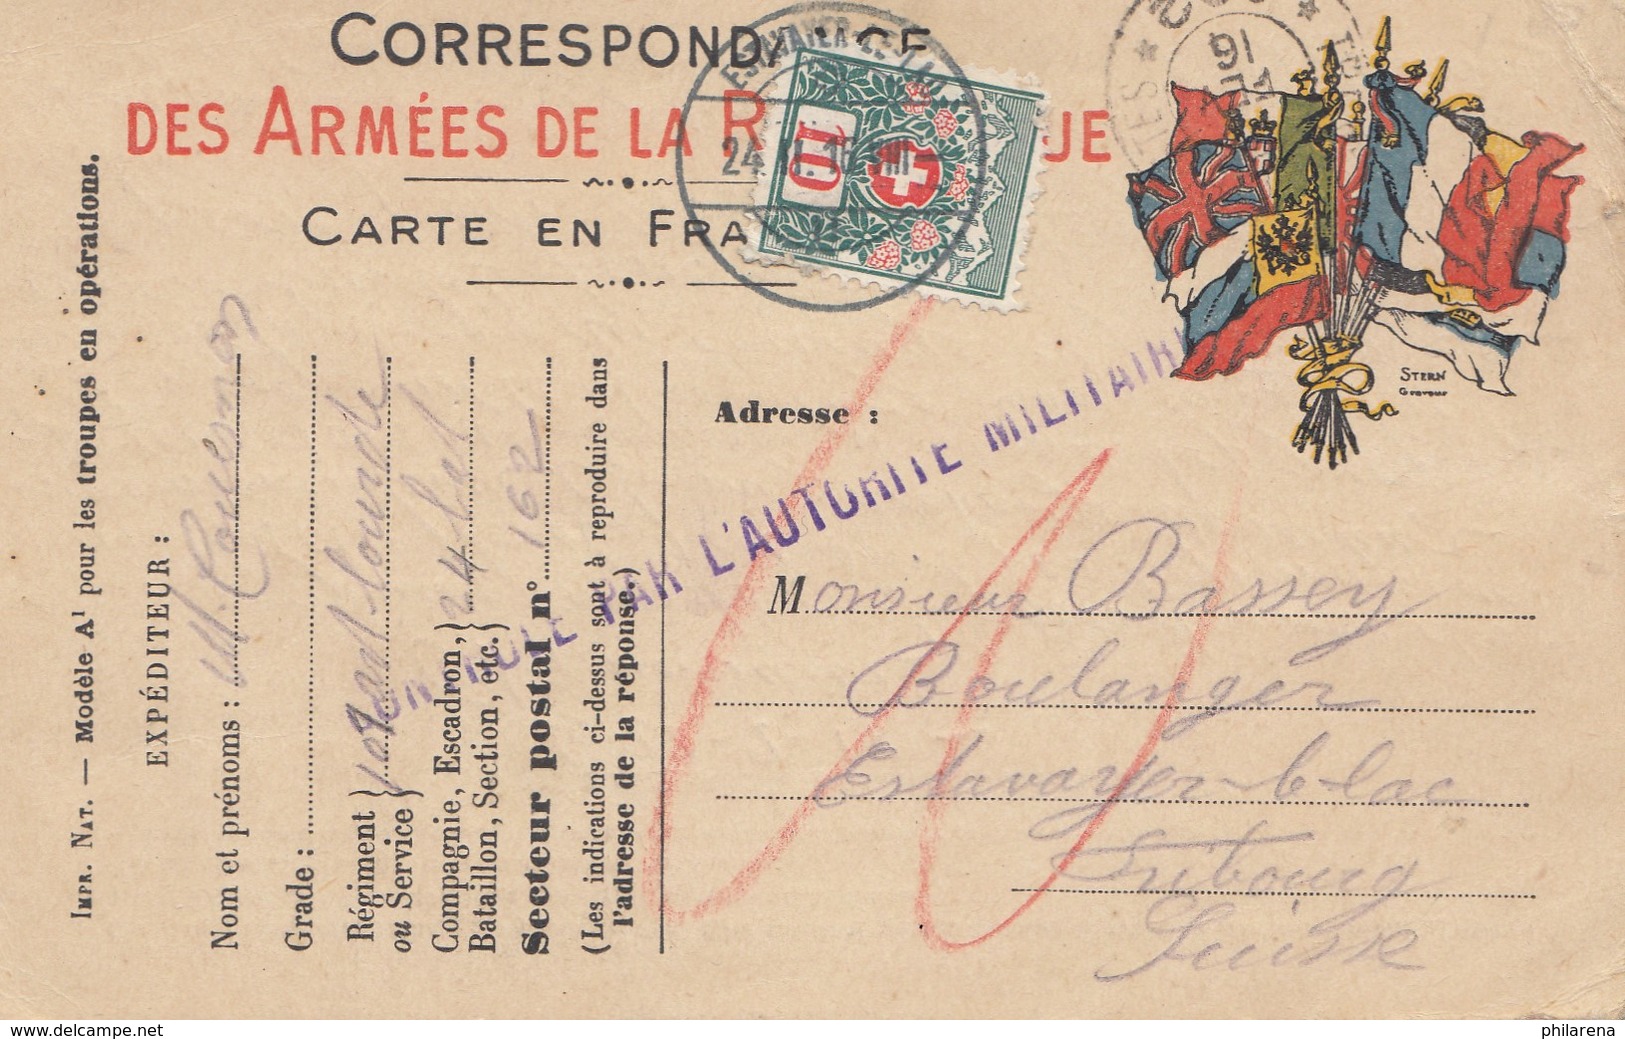 CORRESPONDANCE
DES ARMÉES DE LA R UE
CARTE EN FRA
ESTAVAYER-LE-LAC
24. 16. VIII
10
TES * 16
STERN
Graveur
IMPR. NAT. — Modèle A¹ pour les troupes en opérations.
EXPÉDITEUR :
Nom et prénoms : M.
Grade :
Régiment ou Service } 109 art lourde
Compagnie, Escadron, Bataillon, Section, etc. } 24 bat
Secteur postal n° 162
(Les indications ci-dessus sont à reproduire dans
l'adresse de la réponse.)
CONTROLE PAR L'AUTORITE MILITAIRE
Adresse :
Monsieur Bassey
Boulanger
Estavayer-le-lac
Fribourg
Suisse
www.delcampe.net
philarena